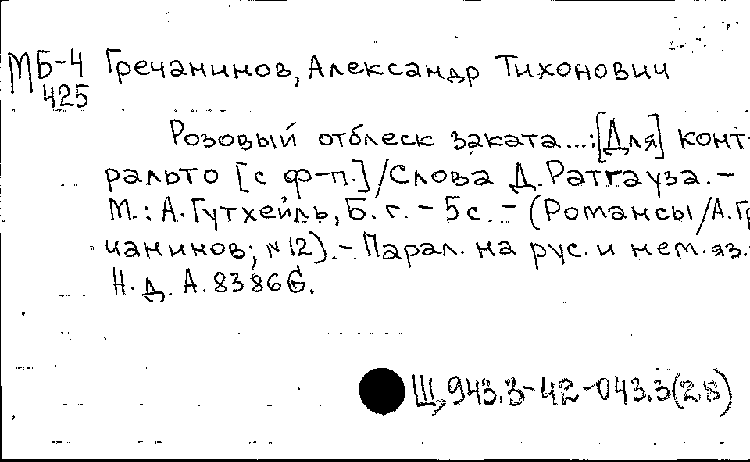 МБ-4 Гречанинов, Александр Тихонович
425
Розовый отблеск заката...: [Для] конт-
ральто [с ф-п.] / Слова Д. Ратгауза. –
М.: А. Гутхейль, Б. г. – 5 с. – (Романсы / А. Гр
чанинов; № 12). – Парал. на рус. и нем. яз. –
Н. д. А. 8386 G.
Щ943.3-42-043.3(28)